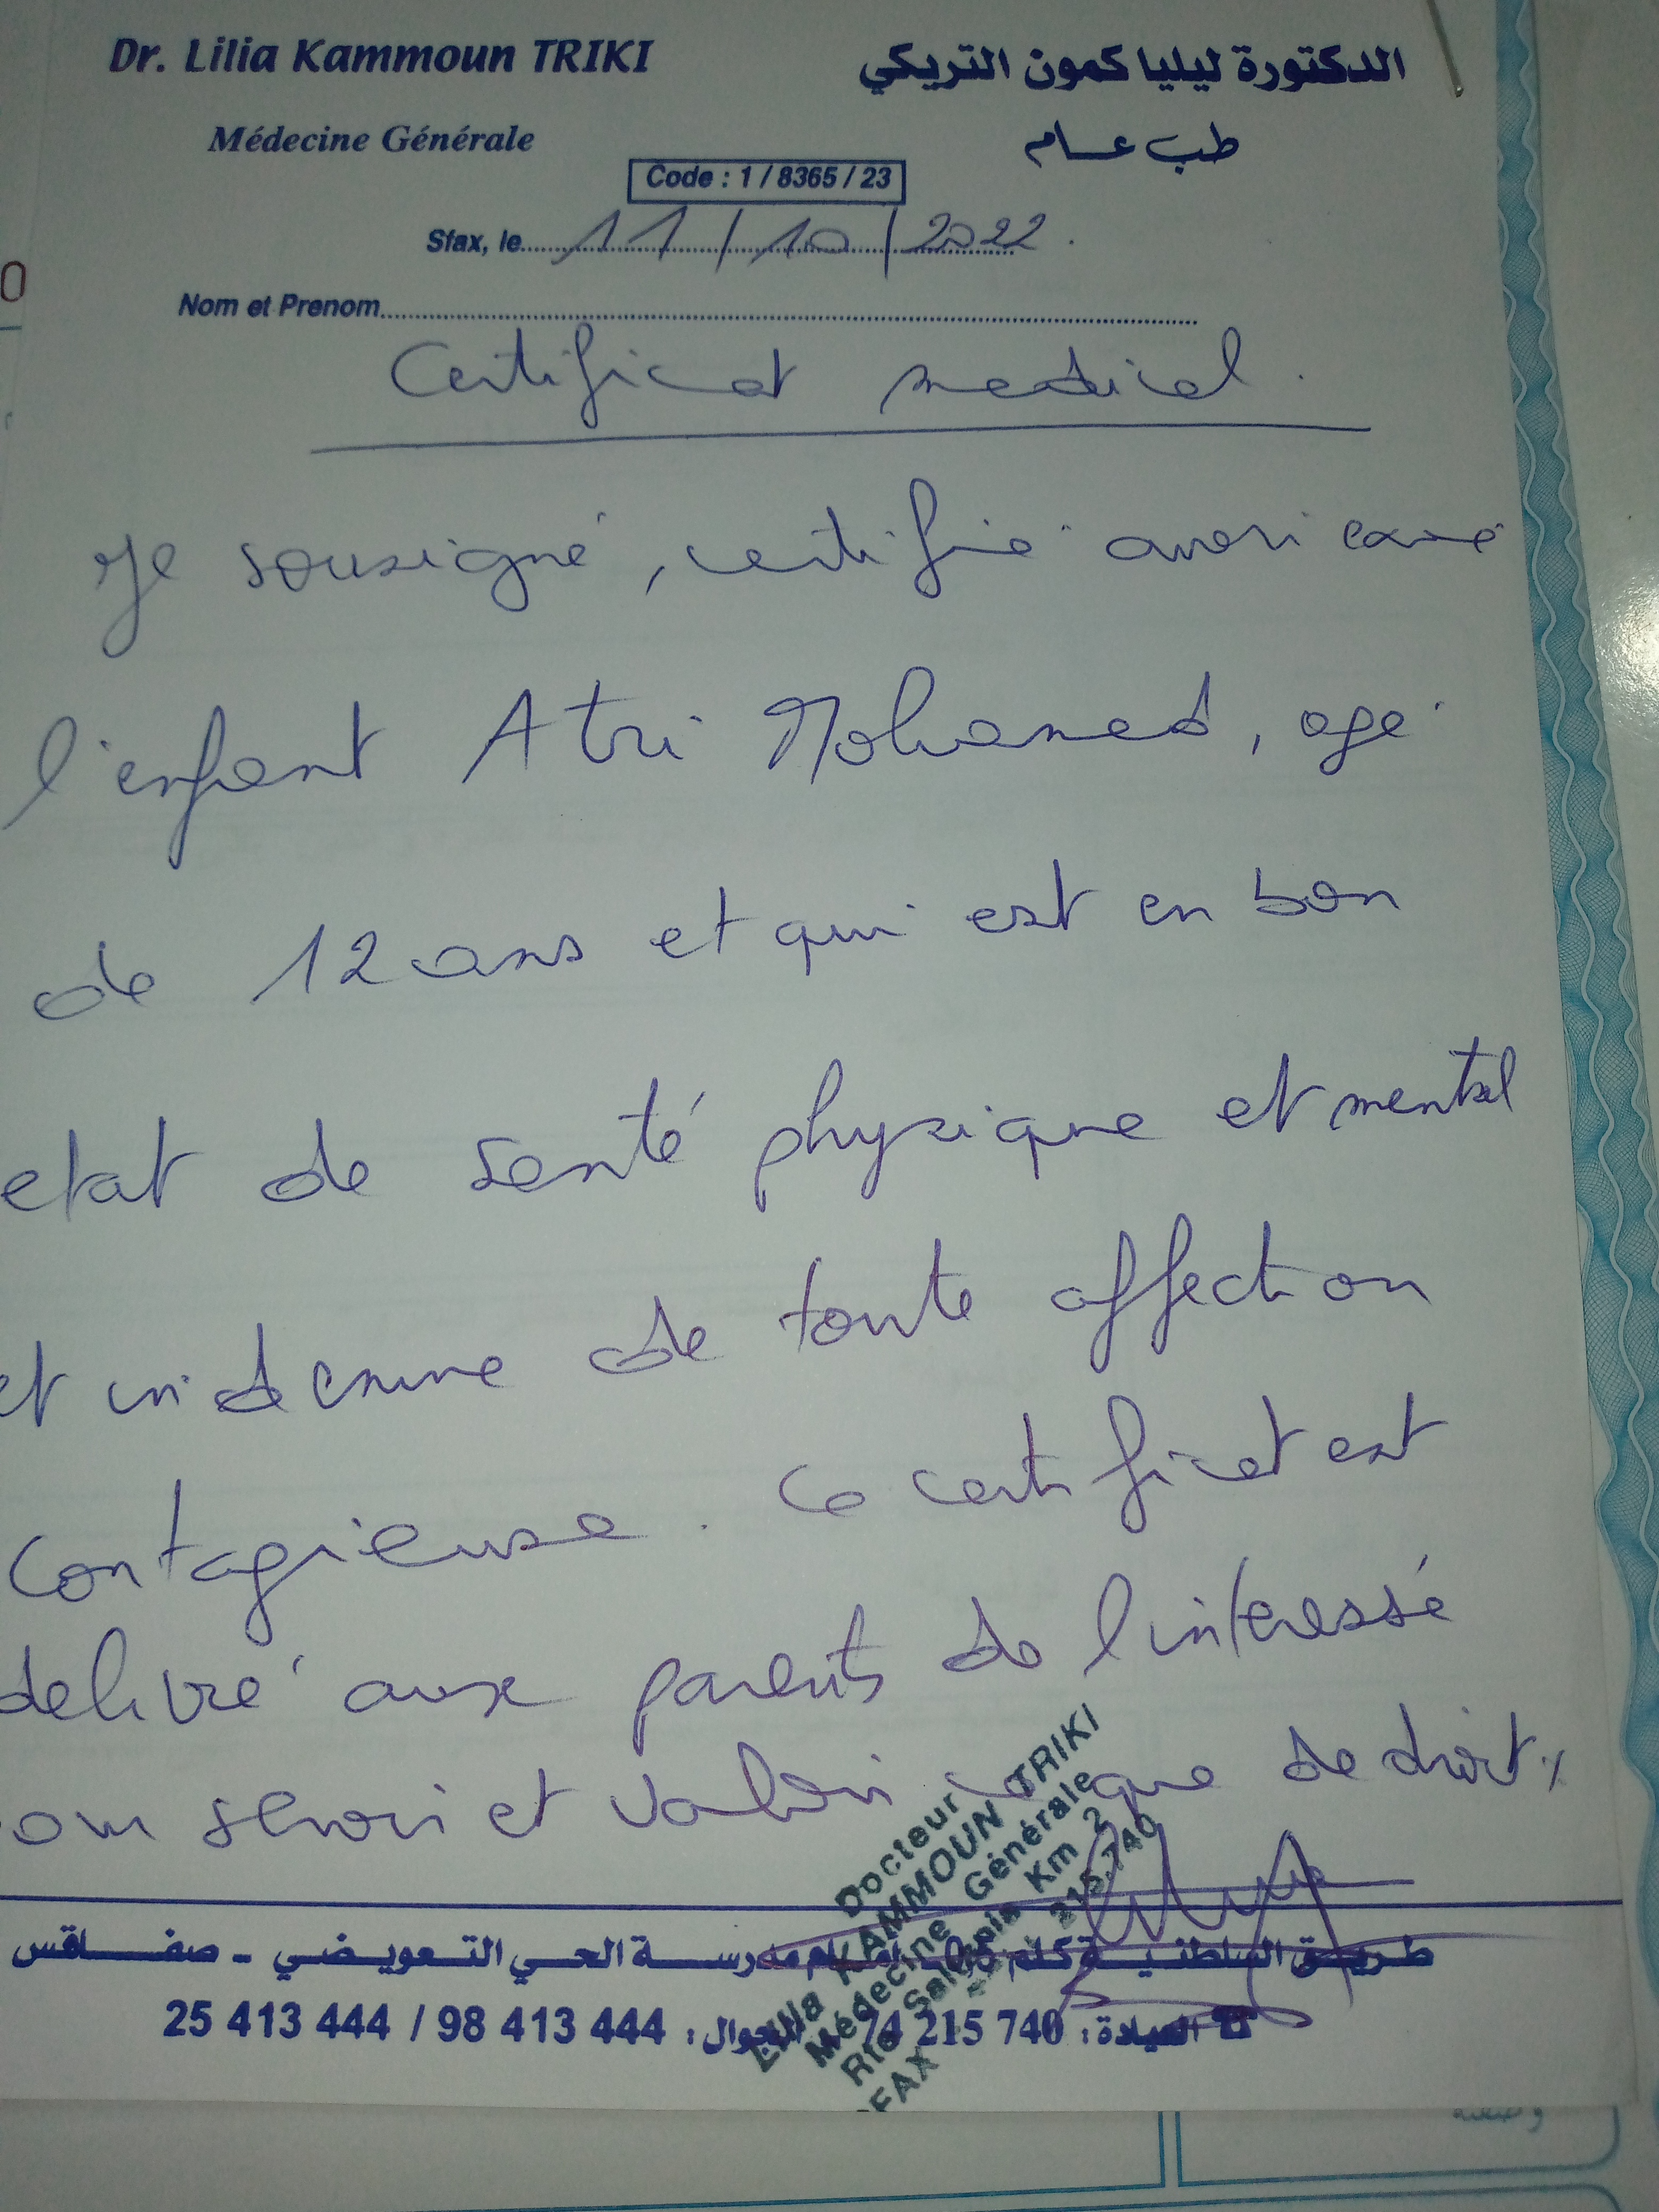 Dr. Lilia Kammoun TRIKI
الدكتورة ليليا كمون التريكي
Médecine Générale
طب عام
Code : 1 / 8365 / 23
Sfax, le 11 / 10 / 2022
Nom et Prenom
Certificat medical.
Je sousigné, certifie avoir
l'enfant Atri Mohamed, agé
de 12 ans et qui est en bon
etat de santé physique et mental
et indemne de toute affection
contagieuse. Ce certificat est
delivré aux parents de l'interessé
servir et valoir que de droit
Docteur
Lilia KAMMOUN TRIKI
Médecine Générale
Rte Saltania Km 2
SFAX 215.740
طريق السلطنية كلم أمام مدرسة الحي التعويضي - صفاقس
العيادة: 74 215 740 الجوال: 98 413 444 / 25 413 444